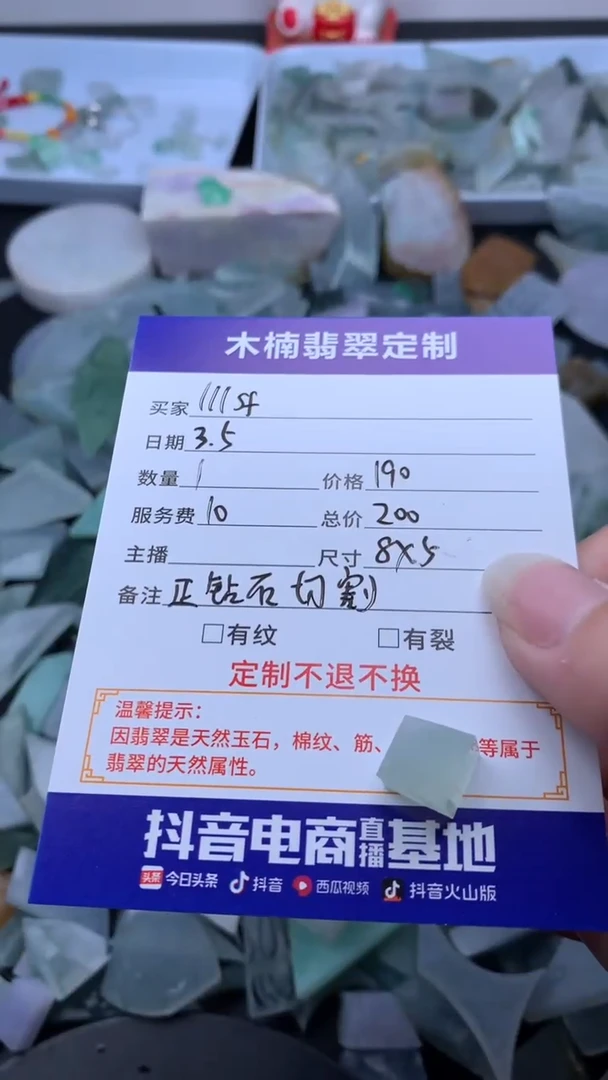 木楠翡翠定制
买家 111sf
日期 3.5
数量 1 价格 190
服务费 10 总价 200
主播 尺寸 8x5
备注 正钻石切割
□有纹 □有裂
定制不退不换
温馨提示:
因翡翠是天然玉石，棉纹、筋、 等属于
翡翠的天然属性。
抖音电商直播基地
头条 今日头条 抖音 西瓜视频 抖音火山版